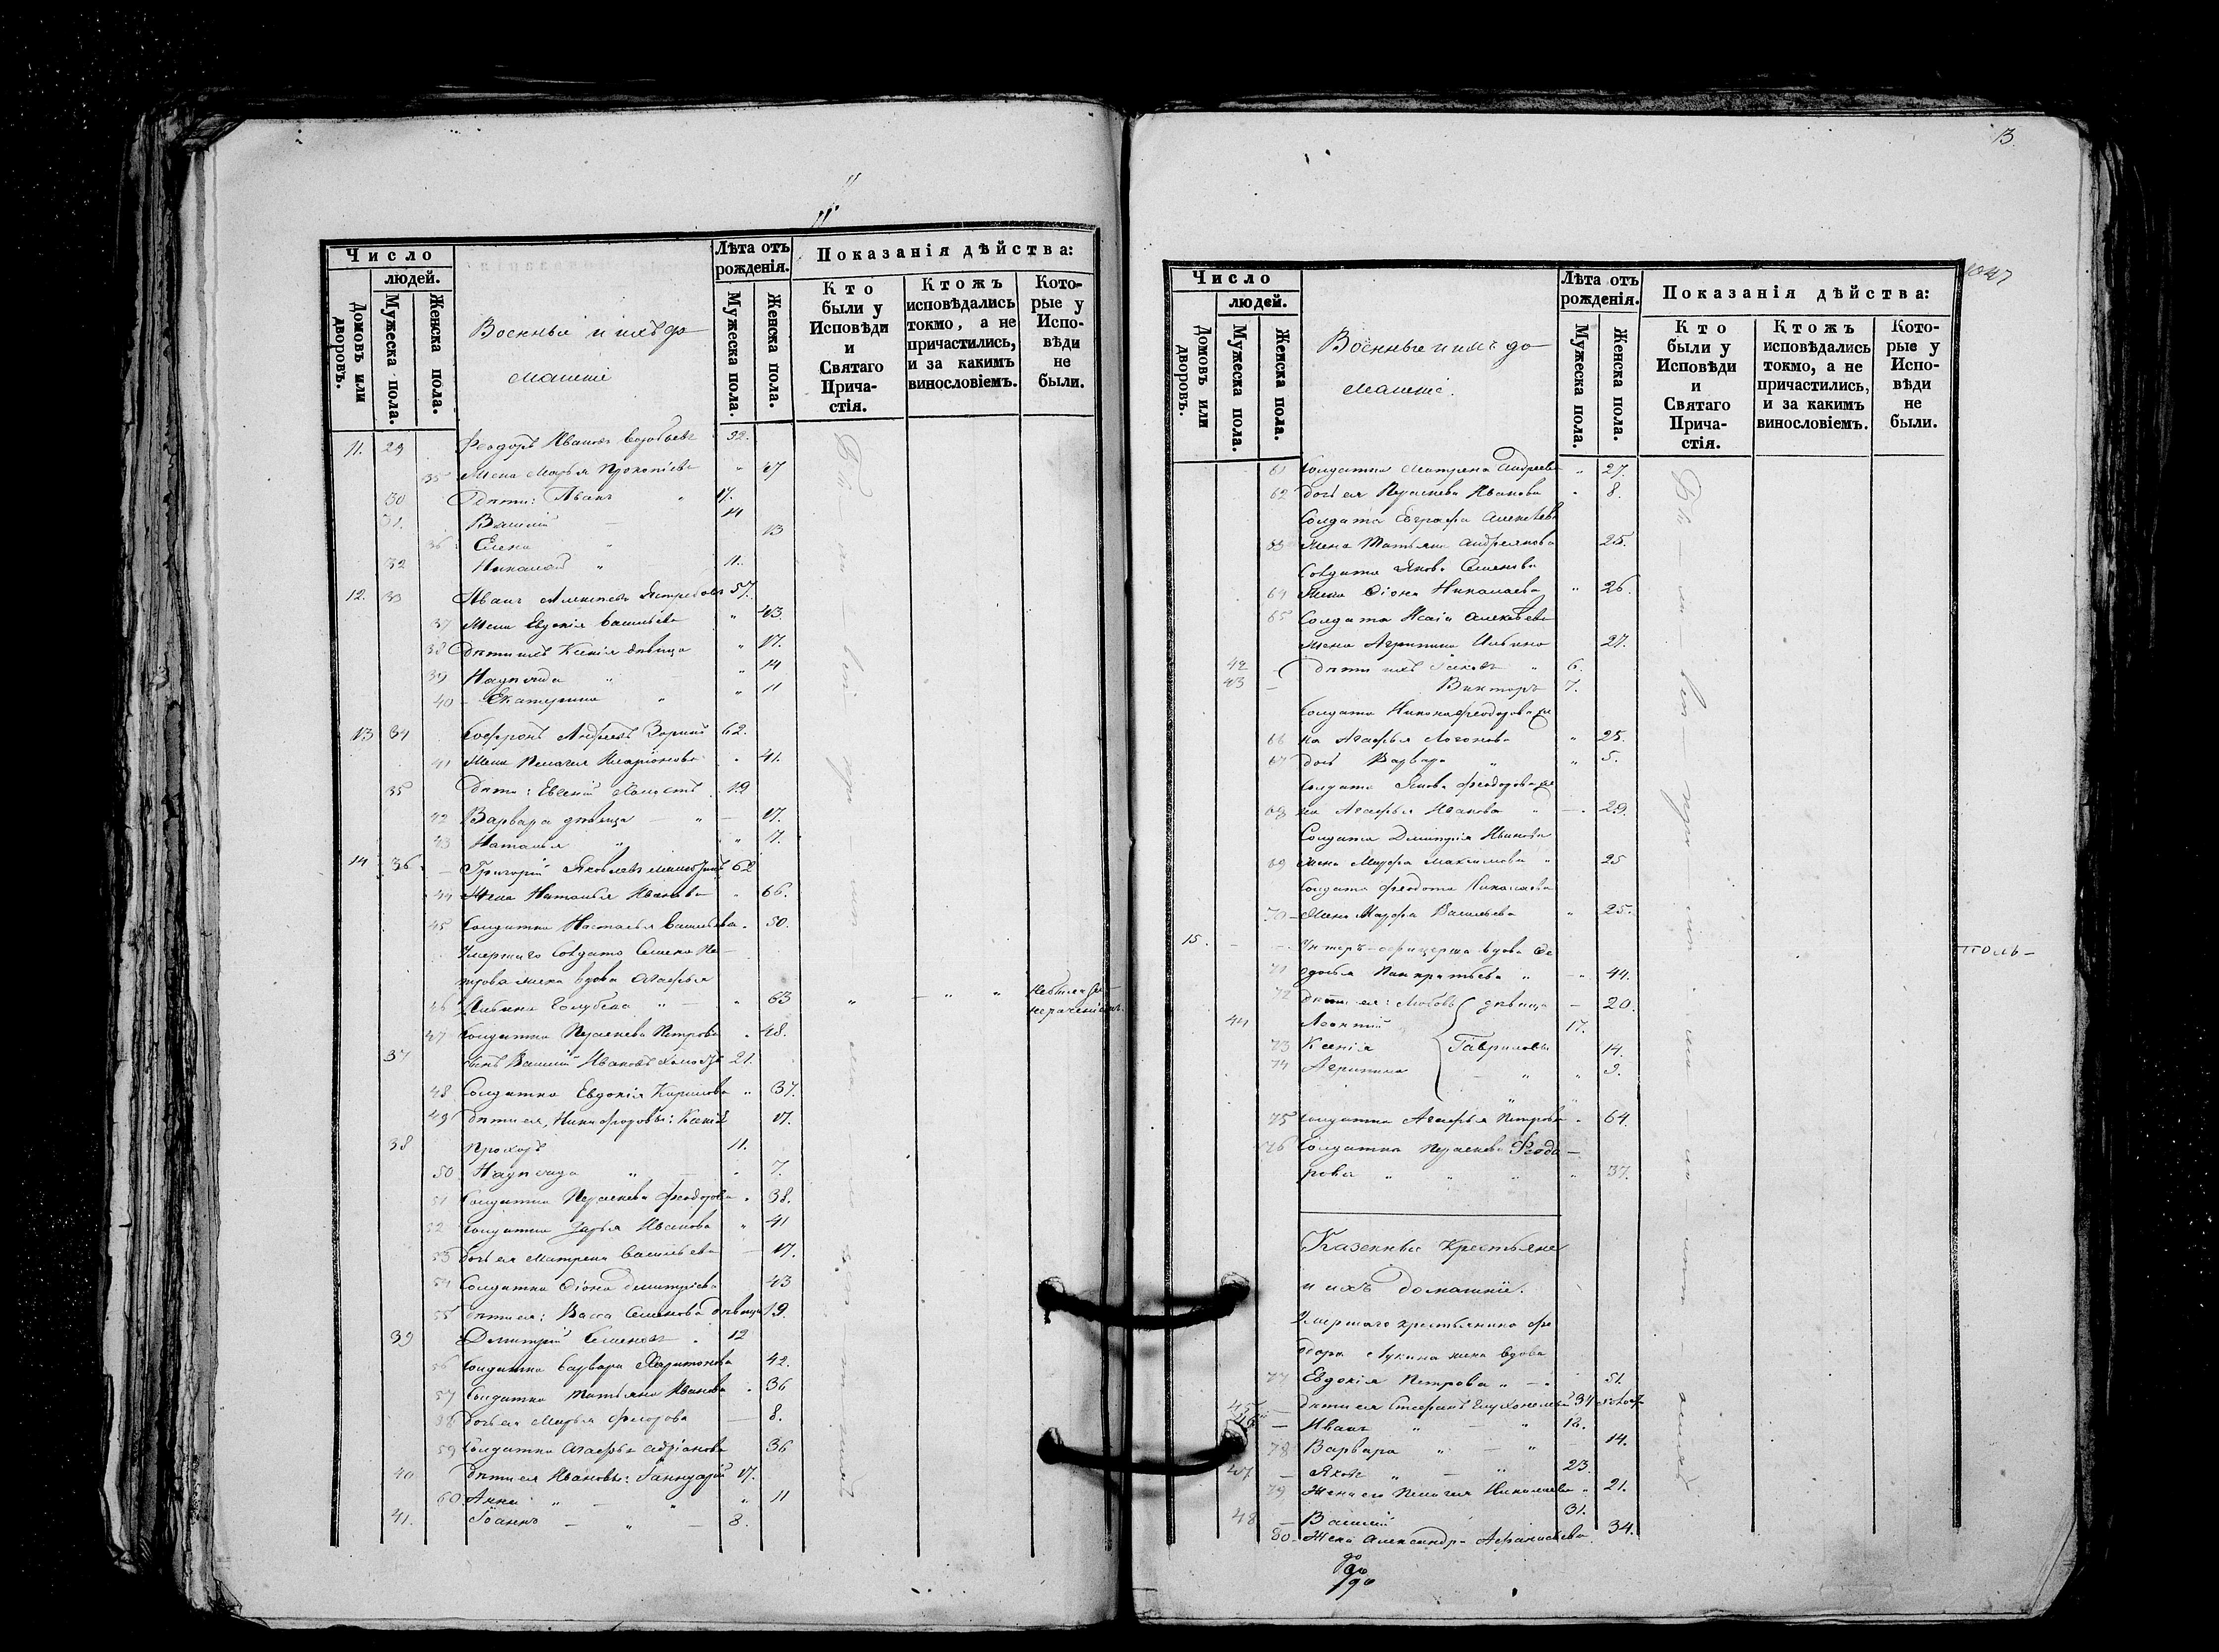 11
Число
людей.
Домовъ или дворовъ.
Мужеска пола.
Женска пола.
Военные и ихъ до
машніе
Лѣта отъ рожденія.
Мужеска пола.
Женска пола.
Показанія дѣйства:
Кто были у Исповѣди и Святаго Причастія.
Ктожъ исповѣдались токмо, а не причастились, и за какимъ винословіемъ.
Которые у Исповѣди не были.
11. 29 Феодоръ Ивановъ Воробьевъ 32.
35 Жена Марья Прокопіева " 47
30 Дѣти: Иванъ " 17.
31. Василій — 14
36 Елена " 13
32 Николай " 11.
12. 33 Иванъ Алексѣевъ Ястребовъ 57.
37 Жена Евдокія Васильева " 43.
38 Дѣти ихъ Ксенія дѣвица " 17.
39 Надежда " " 14
40 Екатерина " " 11
13 34 Софронъ Андреевъ Зоринъ 62.
41 Жена Пелагея Иларіонова " 41.
35 Дѣти: Евгеній холостъ 19
42 Варвара дѣвица — " — 17.
43 Наталья " " 11.
14 36 Григорій Яковлевъ 62
44 Жена Наталья Иванова " 66.
45 Солдатка Настасья Васильева " 50.
Умершаго Солдата Семена Пе—
трова жена вдова Агафья
46 Голубева " — " 63 " — " "
47 Солдатка Прасковья Петрова " 48.
37 сынъ Василій Ивановъ холостъ 21.
48 Солдатка Евдокія Кирилова " 37.
49 Дѣти ея, Никифоровы: Ксенія 17.
38 Прохоръ 11.
50 Надежда " — " 7.
51 Солдатка Прасковья Феодорова " 38.
52 Солдатка Дарья Иванова " 41
53 дочь ея Матрена Васильева — 17.
54 Солдатка Фіона Димитріева 43
55 Дѣти ея: Васса Семенова дѣвица 19.
39 Димитрій Семеновъ " 12
56 Солдатка Варвара Харитонова 42.
57 Солдатка Татьяна Иванова " 36
58 дочь ея Марья Федорова — 8.
59 Солдатка Агафья Адріанова 36
40 Дѣти ея Ивановы: Ганнуарій 17.
60 Анна " — " " 11
41. Іоаннъ — " — 8.
13
1047
Число
людей.
Домовъ или дворовъ.
Мужеска пола.
Женска пола.
Военные и ихъ до
машніе.
Лѣта отъ рожденія.
Мужеска пола.
Женска пола.
Показанія дѣйства:
Кто были у Исповѣди и Святаго Причастія.
Ктожъ исповѣдались токмо, а не причастились, и за какимъ винословіемъ.
Которые у Исповѣди не были.
61 Солдатка Матрена Андреева " 27.
62 дочь ея Прасковья Иванова " 8.
Солдата Евграфа Алексѣева
63 жена Татьяна Андреянова 25.
Солдата Якова Семенова
64 жена Фіона Николаева " 26.
65 Солдата Исаіи Алексѣева
жена Агрипина Ильина 27.
42 — дѣти ихъ Іаковъ " 6.
43 — Викторъ 7.
Солдата Никона Феодорова же
66 на Агафья Логонова " 25.
67 дочь Варвара " " 5.
Солдата Якова Феодорова же
68 на Агафья Иванова " — 29.
Солдата Димитрія Иванова
69 жена Марфа Максимова " 25
Солдата Феодота Николаева
70 — жена Марфа Васильева " 25.
15. — — Унтеръ-офицерша вдова Ѳе
71 одосья Панкратьева " — 44.
72 Дѣти ея: Любовь дѣвица — 20.
44 Леонтій 17.
73 Ксенія Гавриловы 14.
74 Агрипина — " " 9.
75 Солдатка Агафья Петрова " 64.
76 Солдатка Прасковья Феодо —
рова " " " " 37.
Казенные Крестьяне
и ихъ домашніе.
Умершаго крестьянина Фе
одора Лукина жена вдова
77 Евдокія Петрова " — " 51.
45 — дѣти ея Стефанъ 34 холостъ
46 — Иванъ " — " 18.
78 Варвара " — " 14.
47 — Яковъ " — " 23.
79 Жена его Пелагея Николаева " 21.
48 — Василій 31.
80 — Жена Александра Афанасьева 34.